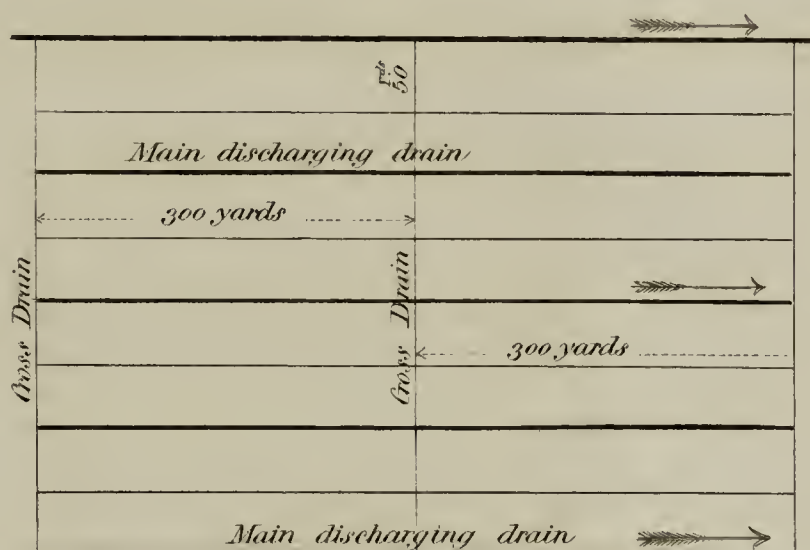 yds
50
Main discharging drain
300 yards
Cross Drain
Cross Drain
300 yards
Main discharging drain